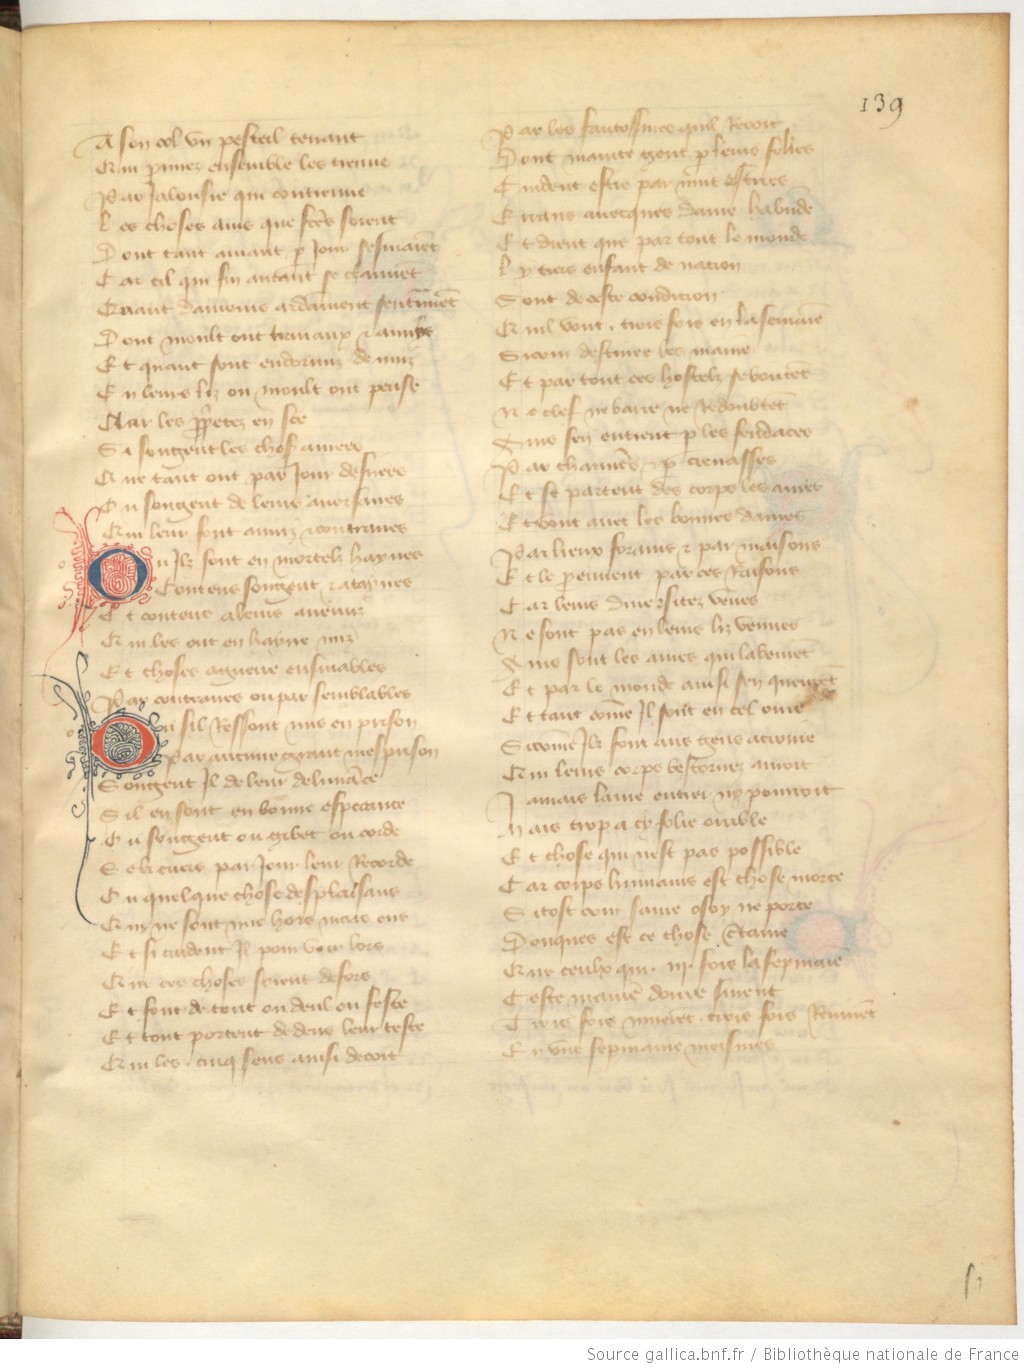 139
A son col un pesteil tenant
Qui prouvez ensemble les tienne
Par Jalousie qui contienne
Les choses ains que fctes soient
Dont tant amant p Jour sesmaiet
Car cil qui fin amant se claimet
Quant damours ardament
Dont moult ont travaux et anuis
Et quant sont endormiz de nuiz
En leurs liz ou moult ont pense
Car les ppetez en sce
Si songent les choses
Que tant ont par Jour desirees
Ou songent de leurs aversaires
Qui leur font anuiz et contraires
Ou Ilz sont en mortelz haynes
Contens songent et ataynes
Et contens a leurs
Qui les ont en hayne mis
Et choses a guerre ensivables
Par contraires ou par semblables
Ou sil Ressont mis en prison
Par aucune grant mesprison
Songent Il de leur delivrance
Sil en sont en bonne esperance
Ou songent ou gibet ou corde
Se li cuers par Jour leur Recorde
Ou quelque chose desplaisans
Qui ne sont mie hors mais ens
Et si cuident Il pour voir lors
Que ces choses soient defors
Et font de tout ou deul ou feste
Et tout portent dedens leur teste
Qui les . cinq sens ainsi decoit
Par les fantosmes quil Recoit
Dont mainte gent p leurs folies
Cuident estre par nuit estries
Errans avecques dame habunde
Et dient que par tout le monde
Ly tiers enfant de nacion
Sont de ceste condicion
Quil vont . trois fois en la semaine
Sicom destinee les maine
Et par tout ces hostelz se boutet
Ne clef ne barre ne Redoubtet
Ains sen entrent p les fendaces
Par chatieres et p crevasses
Et se partent des corps les ames
Et vont avec les bonnes dames
Par lieux forains et par maisons
Et le preuvent par ces Raisons
Car leurs diversitez veues
Ne sont pas en leurs liz venues
Ains sont les ames qui labeuret
Et par le monde ainsi sen queuret
Et tant come Il sont en cel oirre
Sicome Ilz font aus gens acroire
Qui leurs corps bestornez auroit
Jamais lame entrer ny pourroit
Mais trop a cy folie orrible
Et chose qui nest pas possible
Car corps humains est chose morte
Sitost com lame o soy ne porte
Donques est ce chose
Que ceulx qui . iii . fois la sepmaine
Ceste maniere
Trois fois muerent . trois fois Revivet
En une sepmaine meismes
Source gallica.bnf.fr / Bibliothèque nationale de France